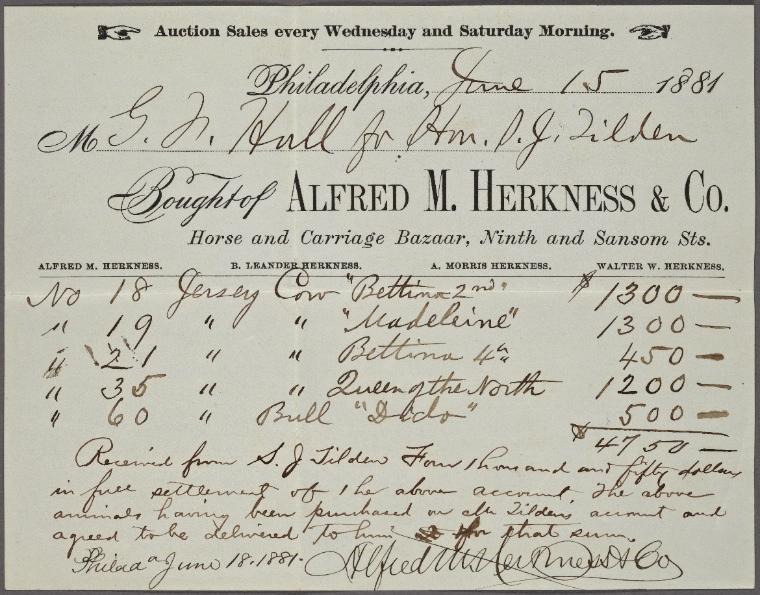 Auction Sales every Wednesday and Saturday Morning.
Philadelphia, June 15 1881
M G. W. Hall for Hon. S. J. Tilden
Bought of ALFRED M. HERKNESS & CO.
Horse and Carriage Bazaar, Ninth and Sansom Sts.
ALFRED M. HERKNESS. B. LEANDER HERKNESS. A. MORRIS HERKNESS. WALTER W. HERKNESS.
No 18 Jersey Cow "Bettina 2nd" $1300 —
" 19 " " "Madeleine" 1300 —
" 21 " " Bettina 4th 450 —
" 35 " " Queen of the North 1200 —
" 60 " Bull "Dido" 500 —
$4750 —
Received from S. J Tilden Four thousand and fifty dollars
in full settlement of the above account. The above
animals having been purchased on Mr Tildens account and
agreed to be delivered to him for that sum.
Philada June 18. 1881. Alfred M Herkness & Co